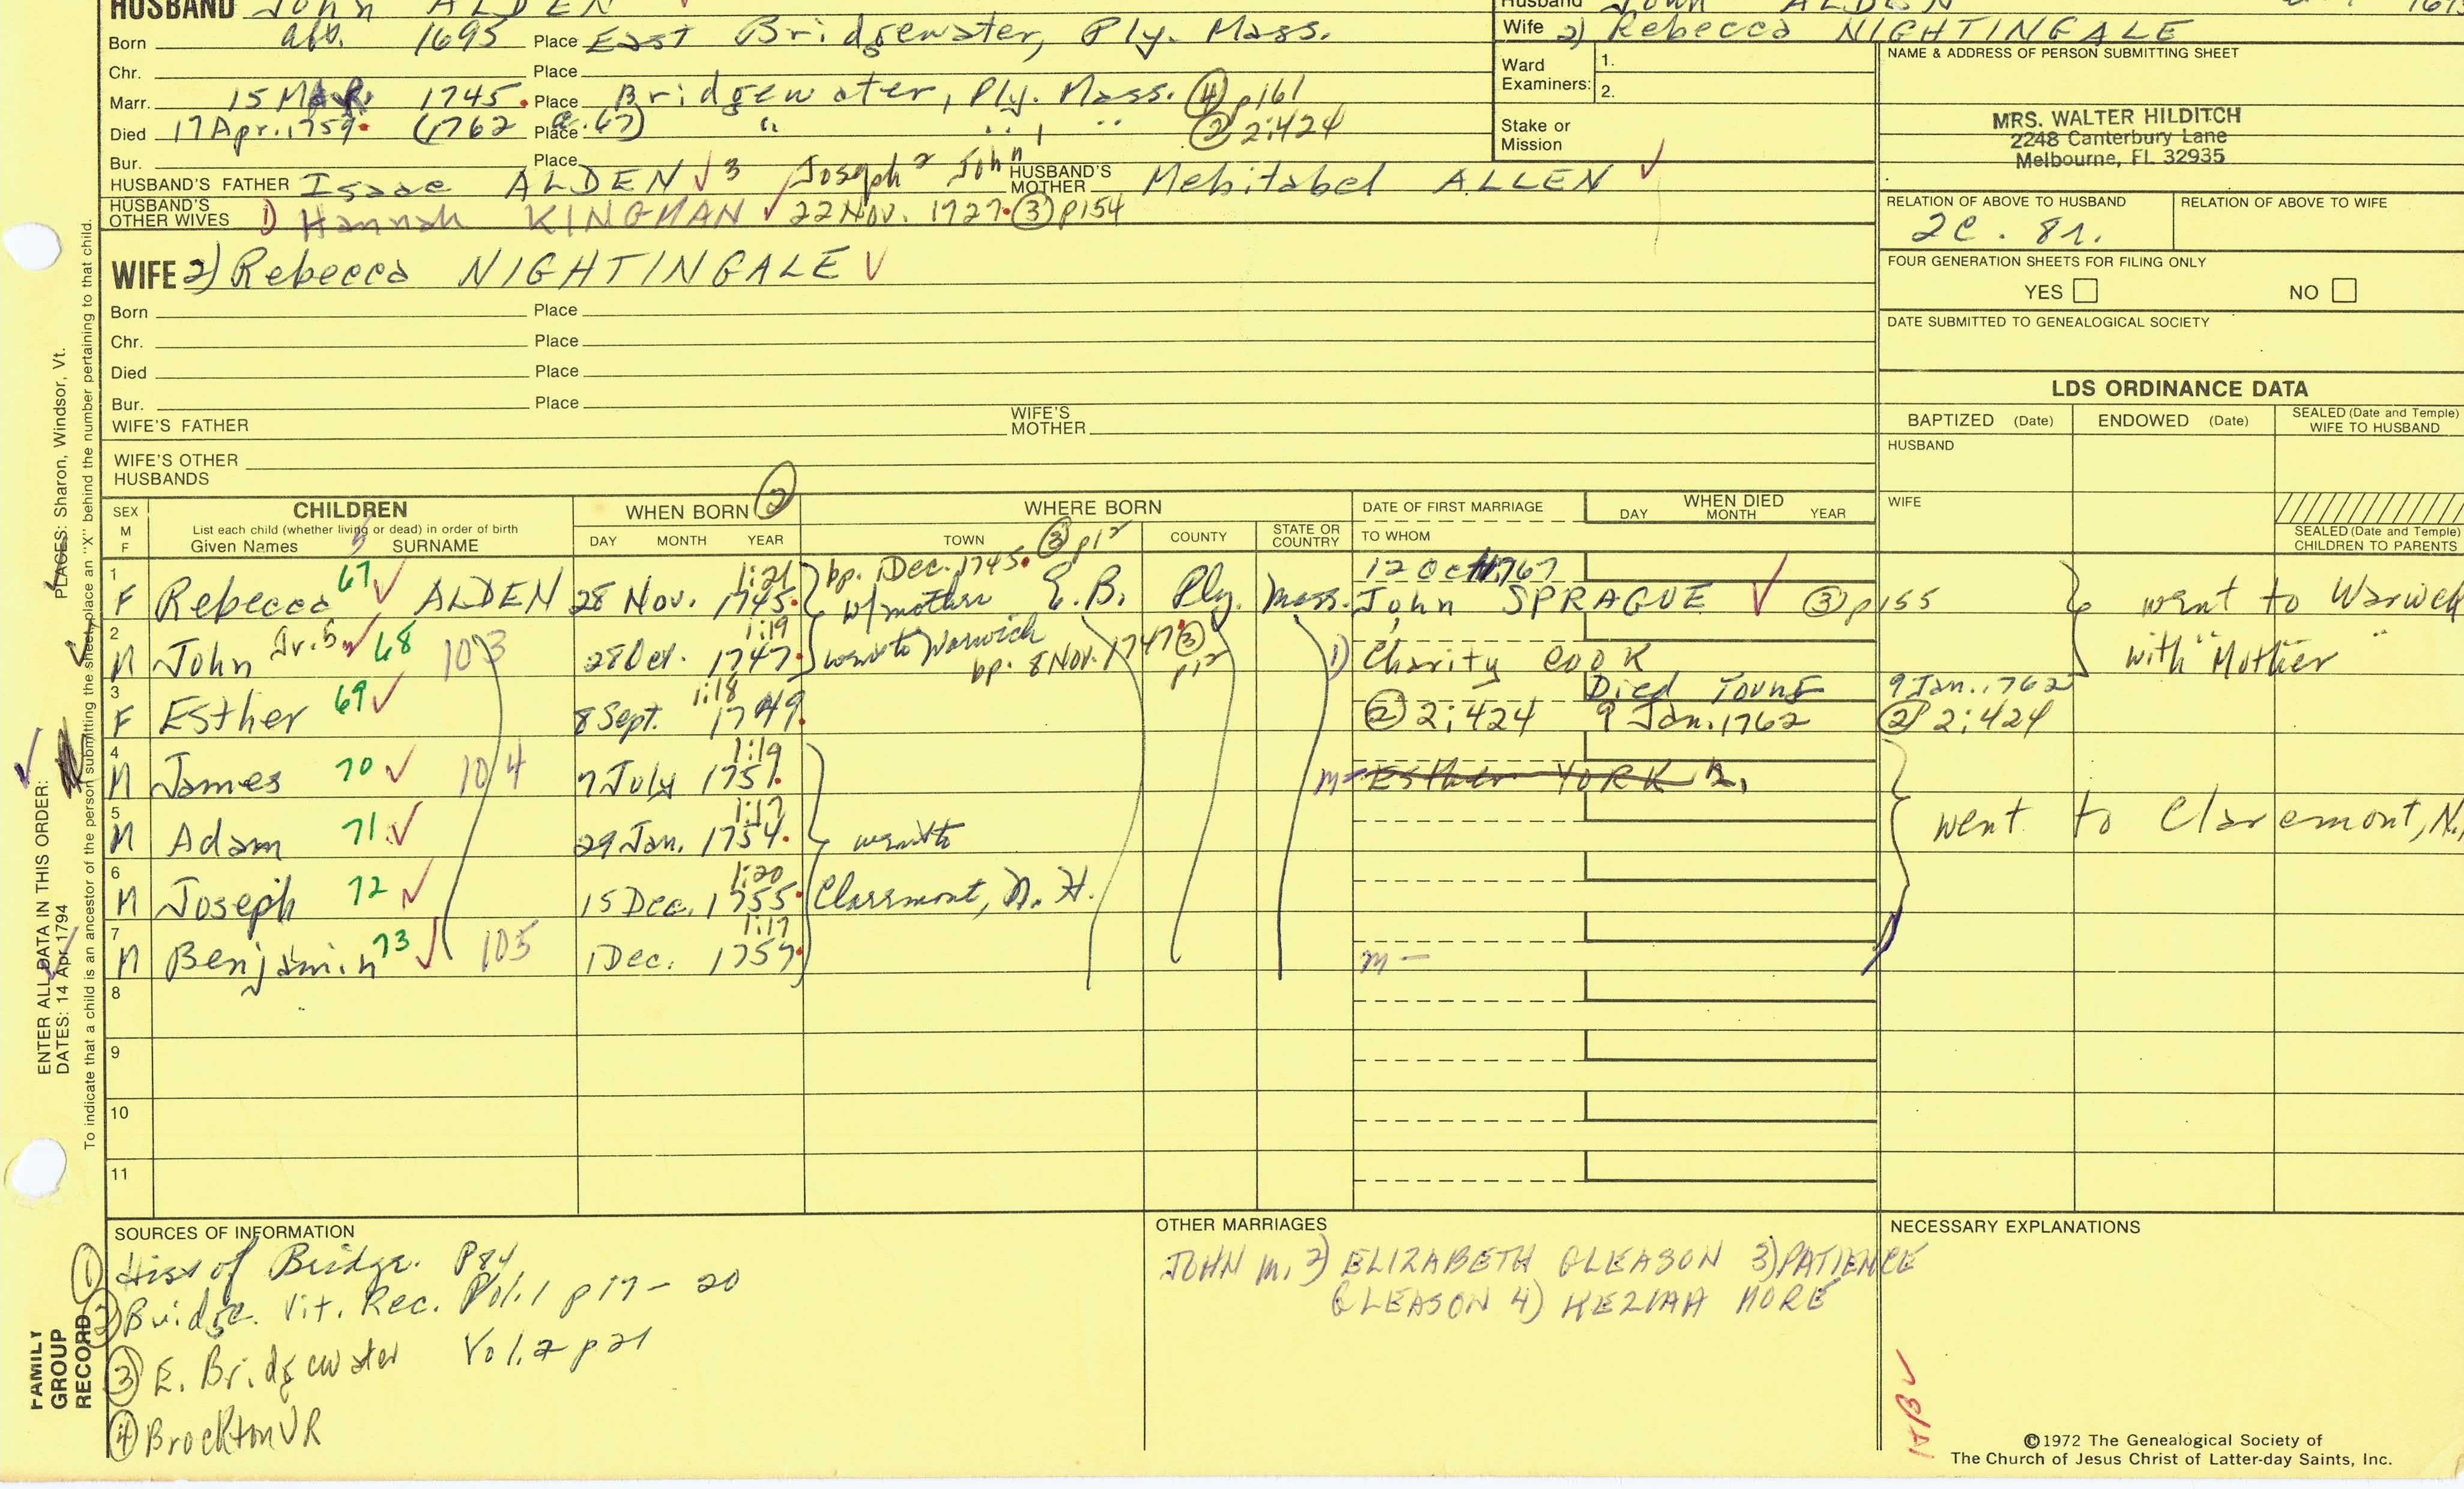 HUSBAND John ALDEN
Born abt. 1695 Place East Bridgewater, Ply. Mass.
Chr. Place
Marr. 15 MAR. 1745. Place Bridgewater, Ply. Mass. ④ p161
Died 17 Apr. 1759. (1762 a. 67) Place " " " ② 2:424
Bur. Place
HUSBAND'S FATHER Isaac ALDEN √ 3 Joseph 2 John HUSBAND'S MOTHER Mehitabel ALLEN √
HUSBAND'S OTHER WIVES 1) Hannah KINGMAN √ 22 Nov. 1727. ③ p154
Husband John ALDEN
Wife 2) Rebecca NIGHTINGALE
Ward Examiners: 1.
2.
Stake or Mission
NAME & ADDRESS OF PERSON SUBMITTING SHEET
MRS. WALTER HILDITCH
2248 Canterbury Lane
Melbourne, FL 32935
RELATION OF ABOVE TO HUSBAND
2c. 8r.
RELATION OF ABOVE TO WIFE
FOUR GENERATION SHEETS FOR FILING ONLY
YES NO
DATE SUBMITTED TO GENEALOGICAL SOCIETY
WIFE 2) Rebecca NIGHTINGALE √
Born Place
Chr. Place
Died Place
Bur. Place
WIFE'S FATHER WIFE'S MOTHER
WIFE'S OTHER HUSBANDS
LDS ORDINANCE DATA
BAPTIZED (Date) ENDOWED (Date) SEALED (Date and Temple) WIFE TO HUSBAND
HUSBAND
WIFE
SEALED (Date and Temple) CHILDREN TO PARENTS
SEX M F
CHILDREN
List each child (whether living or dead) in order of birth
Given Names SURNAME
WHEN BORN ②
DAY MONTH YEAR
WHERE BORN
TOWN COUNTY STATE OR COUNTRY
DATE OF FIRST MARRIAGE
TO WHOM
WHEN DIED
DAY MONTH YEAR
1 F Rebecca 67 √ ALDEN 28 Nov. 1745. 1:21 bp. 1 Dec. 1745. ③ p12 w/mother E.B. Ply. Mass. 12 Oct 1767 John SPRAGUE √ ③ p155
went to Warwick with "Mother"
2 M John Jr. 5 √ 68 103 28 Oct. 1747. 1:19 went to Warwick bp. 8 Nov. 1747 ③ p12 1) Charity COOK
3 F Esther 69 √ 8 Sept. 1749. 1:18 ② 2:424 Died Young 9 Jan. 1762 9 Jan. 1762 ② 2:424
4 M James 70 √ 104 7 July 1751. 1:19 m- Esther YORK
5 M Adam 71 √ 29 Jan. 1754. 1:17
6 M Joseph 72 √ 15 Dec. 1755. 1:20
7 M Benjamin 73 √ 105 1 Dec. 1757. 1:17 m -
went to
Claremont, N. H.
went to Claremont, N.
8
9
10
11
SOURCES OF INFORMATION
① Hist of Bridge. P84
② Bridge. Vit. Rec. Vol. 1 p 17 - 20
③ E. Bridgewater Vol. 2 p 21
④ Brockton VR
OTHER MARRIAGES
JOHN m. 2) ELIZABETH GLEASON 3) PATIENCE
GLEASON 4) KEZIAH MORE
NECESSARY EXPLANATIONS
©1972 The Genealogical Society of
The Church of Jesus Christ of Latter-day Saints, Inc.
ENTER ALL DATA IN THIS ORDER:
DATES: 14 Apr 1794 PLACES: Sharon, Windsor, Vt.
To indicate that a child is an ancestor of the person submitting the sheet, place an "X" behind the number pertaining to that child.
FAMILY
GROUP
RECORD